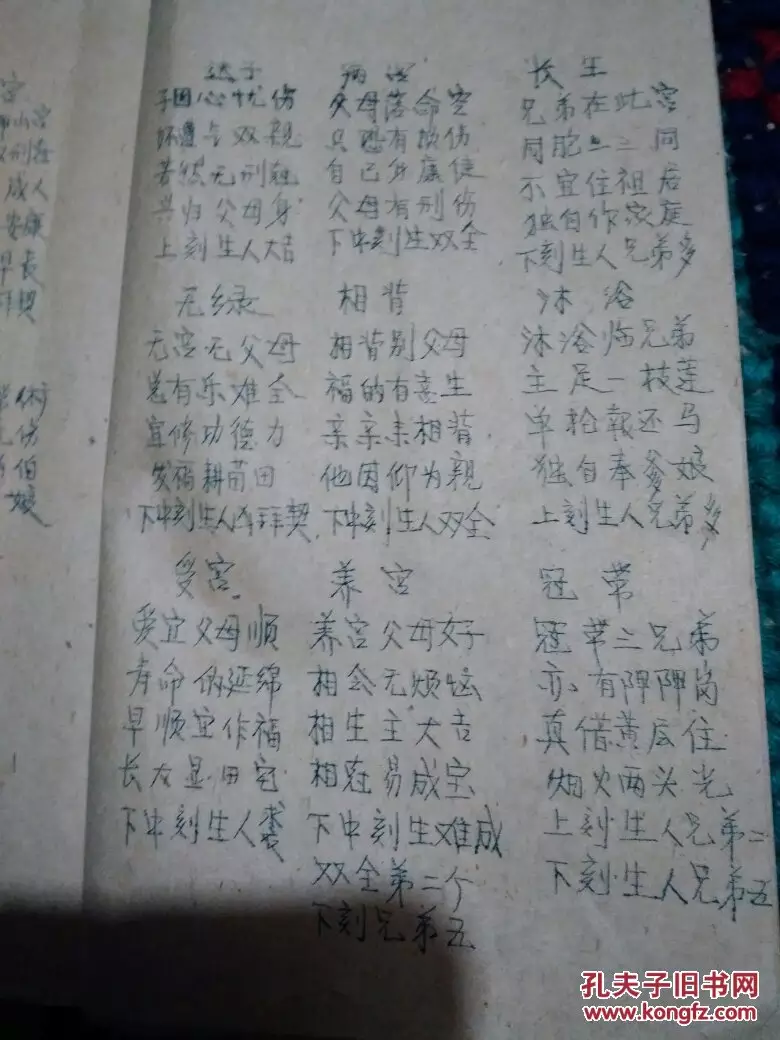 长生
兄弟在此宫
同胞二三同
不宜住祖居
独自作家庭
下刻生人兄弟多
父母落命空
只恐有损伤
自己身康健
父母有刑伤
下中刻生双全
子心忧伤
双亲
若然无刑
共归父母身
上刻生人大吉
无绿
无宫无父母
总有乐难全
宜修功德力
发福耕苗田
下中刻生人凶拜契
相背
相背别父母
福的有生
亲亲未相背
他因仰为亲
下中刻生人双全
沐浴
沐浴临兄弟
主足一枝莲
单枪報还马
独自奉爹娘
上刻生人兄弟多
受宫
受宜父母顺
寿命的延绵
早顺宜作福
长大显田宅
下中刻生人
养宫
养宫父母好
相会无烦恼
相生主大吉
相冠易成宝
下中刻生难成
双全第二个
下刻兄弟五
冠带
冠带三兄弟
亦有阵阵岗
真借黄后住
烟火两头光
上刻生人兄弟二
下刻生人兄弟五
宫
成人
安康
早长
拜契
伤
伯
娘
孔夫子旧书网
www.kongfz.com